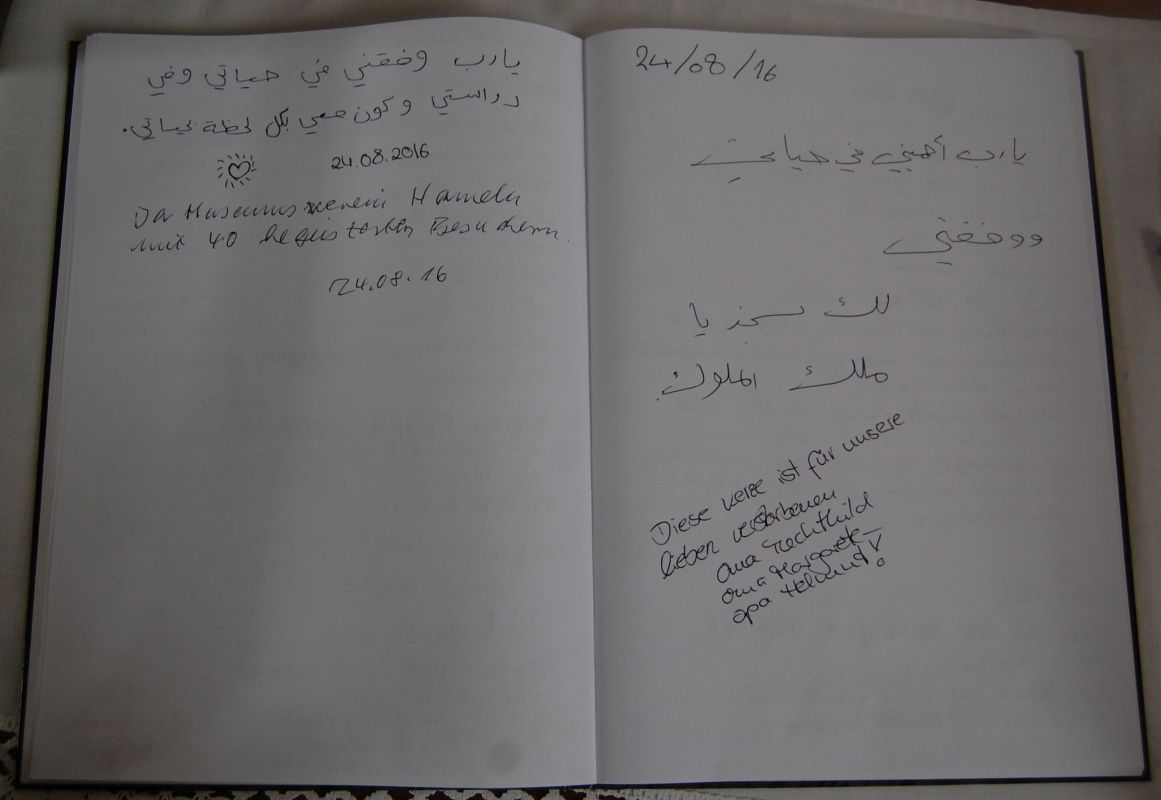 يارب وفقني في حياتي وفي
دراستي وكون معي بكل لحظة بحياتي.
24.08.2016
Da Museumsverein Hameln
mit 40 begeisterten Besuchern.
24.08.16
24/08/16
يارب أحميني في حياتي
ووفقني
لك نسجد يا
ملك الملوك.
Diese kerze ist für unsere
lieben verstorbenen
oma Mechthild
oma Margarete
opa Helmut!